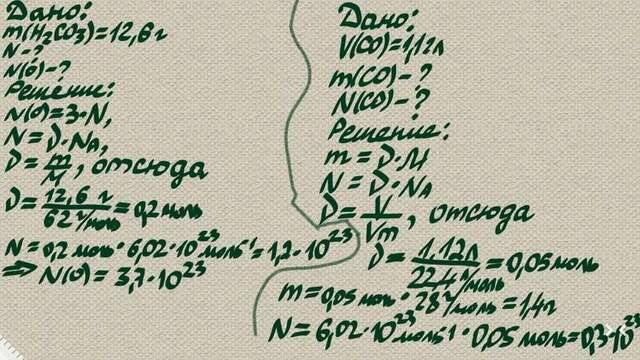 Дано:
m(H₂CO₃)=12,6г
N-?
N(O)-?
Решение:
N(O)=3·N,
N=ν·Nₐ,
ν=m/M, отсюда
ν=12,6 г/62 г/моль=0,2 моль
N=0,2 моль·6,02·10²³моль⁻¹=1,2·10²³
⇒ N(O)=3,7·10²³
Дано:
V(CO)=1,12л
m(CO)-?
N(CO)-?
Решение:
m=ν·M
N=ν·Nₐ
ν=V/Vm, отсюда
ν=1,12л/22,4 л/моль=0,05моль
m=0,05 моль·28 г/моль=1,4г
N=6,02·10²³моль⁻¹·0,05 моль=0,3·10²³